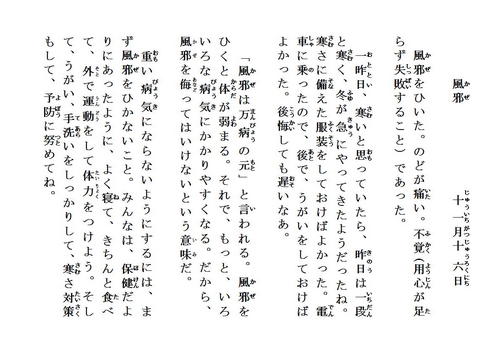 風邪
十一月十六日
風邪をひいた。のどが痛い。不覚(用心が足
らず失敗すること)であった。
一昨日、寒いと思っていたら、昨日は一段
と寒く、冬が急にやってきたようだったね。
寒さに備えた服装をしておけばよかった。電
車に乗ったので、後で、うがいをしておけば
よかった。後悔しても遅いなあ。
「風邪は万病の元」と言われる。風邪を
ひくと体が弱まる。それで、もっと、いろ
いろな病気にかかりやすくなる。だから、
風邪を侮ってはいけないという意味だ。
重い病気にならないようにするには、ま
ず風邪をひかないこと。みんなは、保健だよ
りにあったように、よく寝て、きちんと食べ
て、外で運動をして体力をつけよう。そし
て、うがい、手洗いをしっかりして、寒さ対策
もして、予防に努めてね。